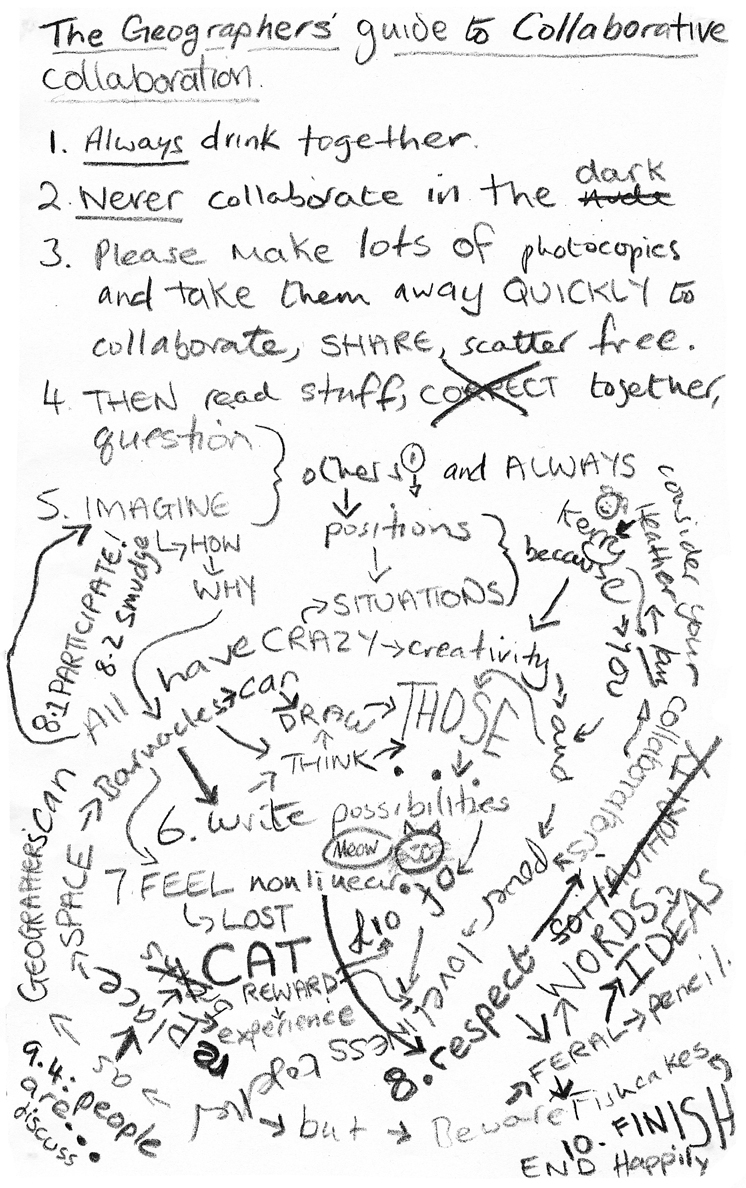 The Geographers' guide to Collaborative
collaboration.
1. Always drink together.
2. Never collaborate in the dark
3. Please make lots of photocopies
and take them away QUICKLY to
collaborate, SHARE, scatter free.
4. THEN read stuff, CORRECT together,
question
others and ALWAYS
consider your
Heather
Kerry
5. IMAGINE
positions
because
HOW
WHY
SITUATIONS
8.1 PARTICIPATE!
8.2 Smudge
YOU
fun
Collaborators
All
have CRAZY creativity
and
Barnacles can
DRAW
THOSE
THINK
6. write possibilities
Meow
GEOGRAPHERS' CAN
SPACE
7. FEEL nonlinear
of
LOST
CAT
£10
REWARD
experience
place
loveliness
8. respect
WORDS?
IDEAS
FERAL pencil.
9.4: people
are...
discuss
so
but Beware Fishcakes
10. FINISH
END Happily